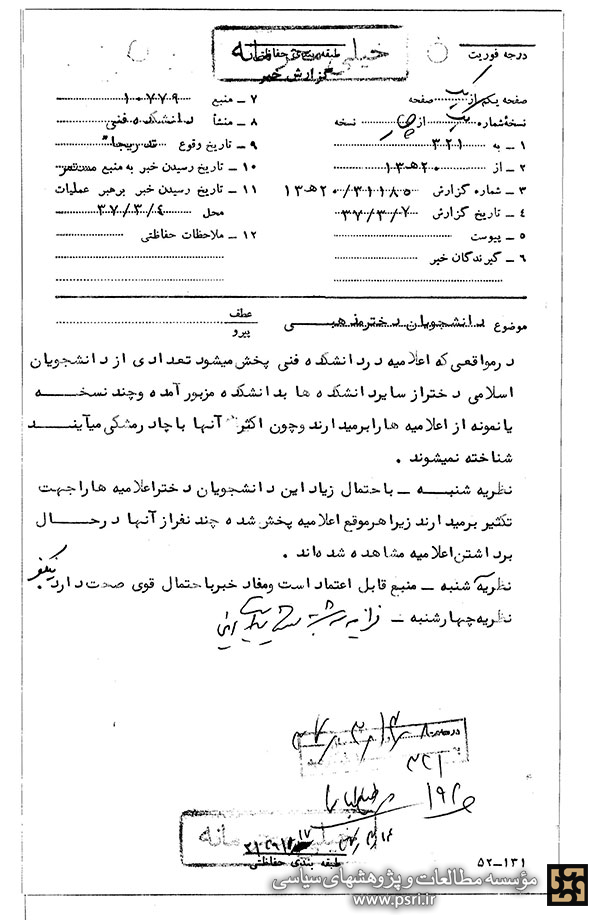 درجه فوریت
خیلی محرمانه
طبقه‌بندی حفاظتی
گزارش خبر
صفحه یکم از یک صفحه
نسخه شماره یک از چهار نسخه
۱ ــ به ۳۲۱
۲ ــ از ۲۰هـ۱۳
۳ ــ شماره گزارش ۲۰/۳۱۱۸۵هـ۱۳
۴ ــ تاریخ گزارش ۳۷/۳/۷
۵ ــ پیوست
۶ ــ گیرندگان خبر
۷ ــ منبع ۱۰۷۷۹
۸ ــ منشأ دانشکده فنی
۹ ــ تاریخ وقوع تدریجا"
۱۰ ــ تاریخ رسیدن خبر به منبع مستمر
۱۱ ــ تاریخ رسیدن خبر برهبر عملیات
محل ۳۷/۳/۴
۱۲ ــ ملاحظات حفاظتی
موضوع دانشجویان دختر مذهبی
عطف
پیرو
در مواقعی که اعلامیه در دانشکده فنی پخش میشود تعدادی از دانشجویان
اسلامی دختر از سایر دانشکده ها بدانشکده مزبور آمده و چند نسخه
یا نمونه از اعلامیه ها را برمیدارند و چون اکثر آنها با چادر مشکی میآیند
شناخته نمیشوند .
نظریه شنبه ــ با احتمال زیاد این دانشجویان دختر اعلامیه ها را جهت
تکثیر برمیدارند زیرا هر موقع اعلامیه پخش شده چند نفر از آنها در حال
برداشتن اعلامیه مشاهده شده‌اند .
نظریه ۳شنبه ــ منبع قابل اعتماد است و مفاد خبر با احتمال قوی صحت دارد نیکفر
نظریه چهارشنبه ــ
۳۲۱
خیلی محرمانه
طبقه بندی حفاظتی
۵۲ــ۱۳۱
مؤسسه مطالعات و پژوهشهای سیاسی
www.psri.ir